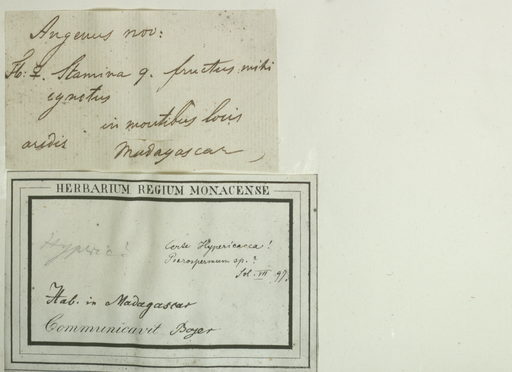 An genus nov:
Fl: ☿. Stamina 9. fructus mihi
ignotus
in montibus locis
aridis Madagascar
HERBARIUM REGIUM MONACENSE
Hyperic?
Certe Hypericacea!
Psorospermum sp.?
Sol. VII. 97.
Hab. in Madagascar
Communicavit Bojer